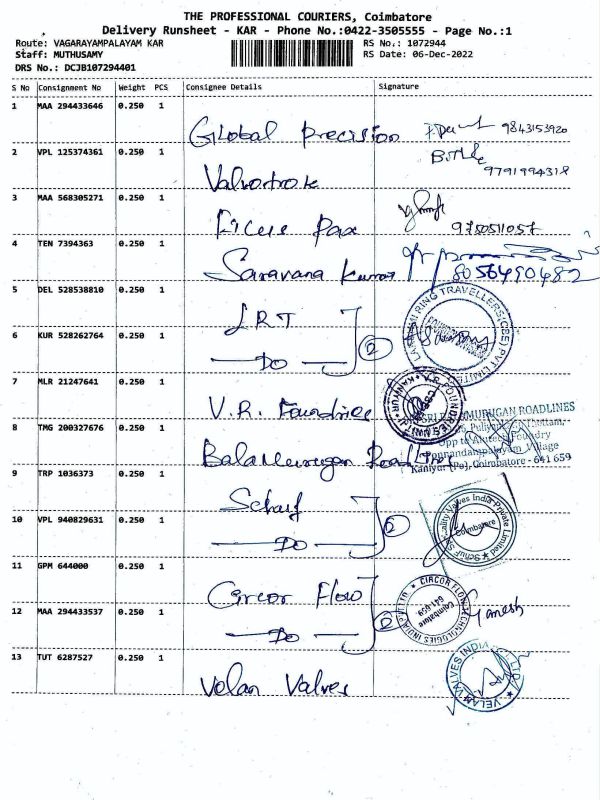 THE PROFESSIONAL COURIERS, Coimbatore
Delivery Runsheet - KAR - Phone No.:0422-3505555 - Page No.:1
Route: VAGARAYAMPALAYAM KAR RS No.: 1072944
Staff: MUTHUSAMY RS Date: 06-Dec-2022
DRS No.: DCJB107294401
S No Consignment No Weight PCS Consignee Details Signature
1 MAA 294433646 0.250 1
Global Precision 9843153920
2 VPL 125374361 0.250 1
9791994318
3 MAA 568305271 0.250 1
Ficus Pax 9750511057
4 TEN 7394363 0.250 1
Saravana Kumar 8056490682
5 DEL 528538810 0.250 1
LRT
LAKSHMI RING TRAVELLERS (CBE) PVT LIMITED
6 KUR 528262764 0.250 1
Do 2
7 MLR 21247641 0.250 1
V.R. Foundries
V.R. FOUNDRIES KANIYUR
SRI BALAMURUGAN ROADLINES
8 TMG 200327676 0.250 1
Foundry
Village
Kaniyur (Po), Coimbatore - 641 659
Balamurugan
9 TRP 1036373 0.250 1
Schuf
10 VPL 940829631 0.250 1
Do 2
Schuf Speciality Valves India Private Limited
Coimbatore
11 GPM 644000 0.250 1
Circor Flow
CIRCOR FLOW TECHNOLOGIES INDIA PVT LTD
Coimbatore
641-659
12 MAA 294433537 0.250 1
Do 2 Ganesh
13 TUT 6287527 0.250 1
Velan Valves
VELAN VALVES INDIA